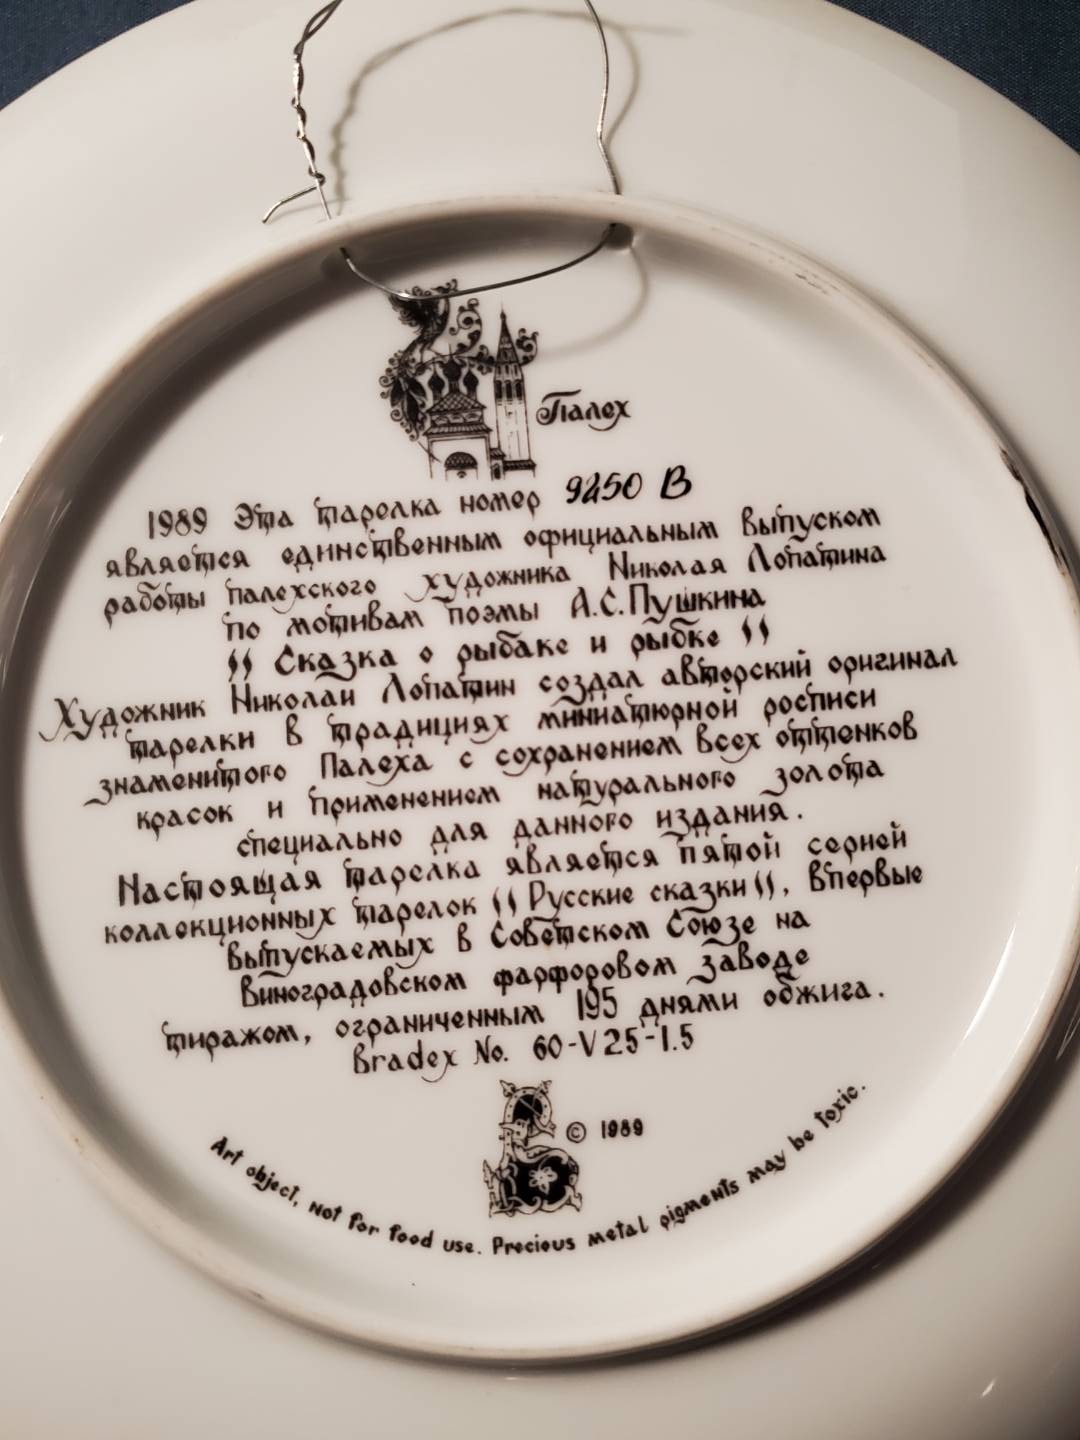 Палех
1989 Эта тарелка номер 9250 В
является единственным официальным выпуском
работы палехского художника Николая Лопатина
по мотивам поэмы А.С.Пушкина
"Сказка о рыбаке и рыбке"
Художник Николай Лопатин создал авторский оригинал
тарелки в традициях миниатюрной росписи
знаменитого Палеха с сохранением всех оттенков
красок и применением натурального золота
специально для данного издания.
Настоящая тарелка является пятой серией
коллекционных тарелок "Русские сказки", впервые
выпускаемых в Советском Союзе на
Виноградовском фарфоровом заводе
тиражом, ограниченным 195 днями обжига.
Bradex No. 60-V25-1.5
© 1989
Art object, not for food use. Precious metal pigments may be toxic.